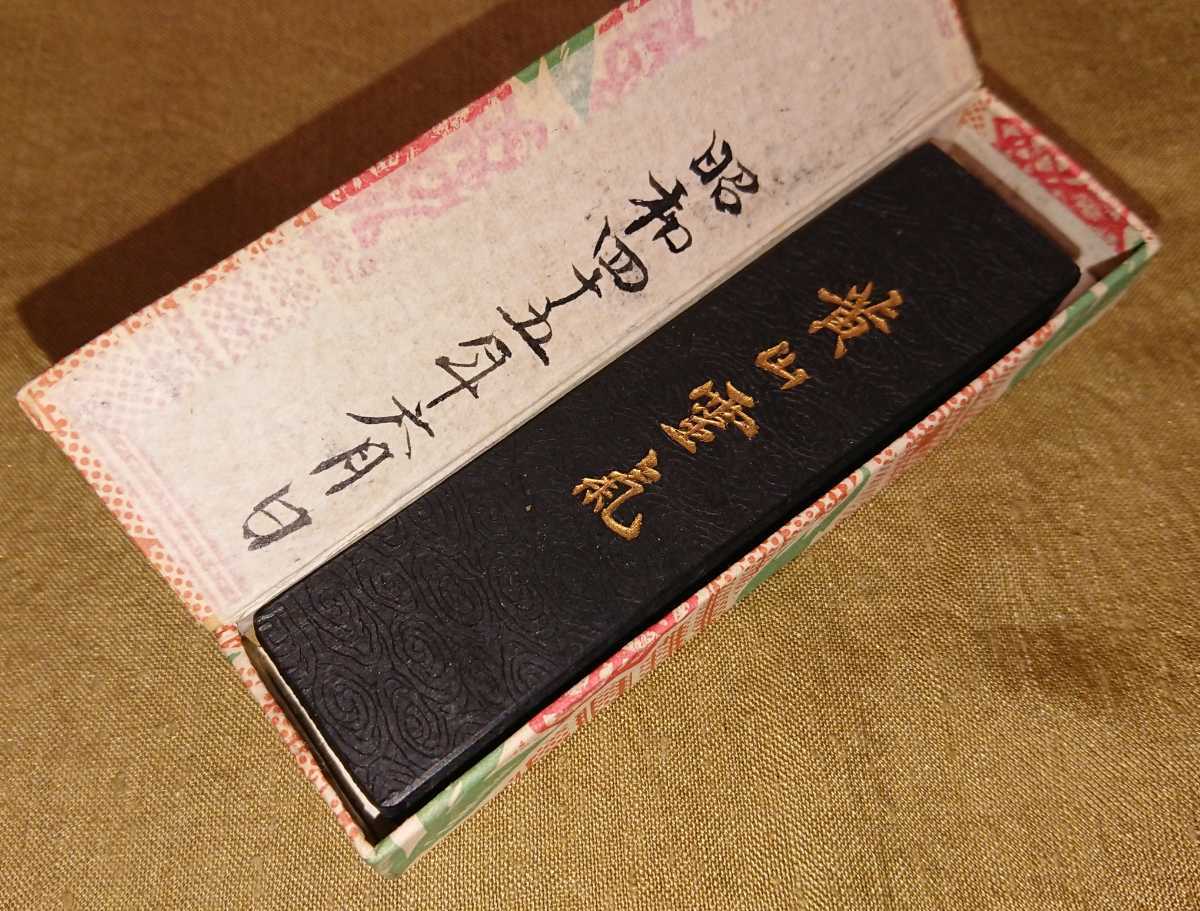 昭和四十五年十六月日
黄山靈氣